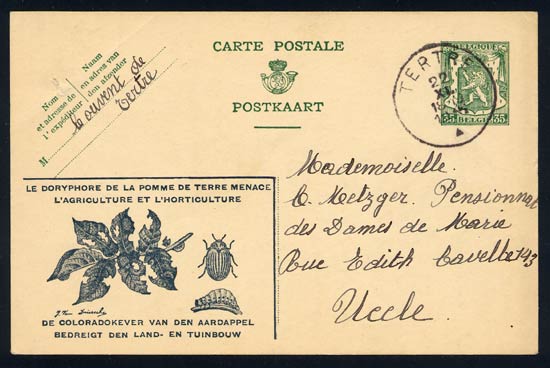 CARTE POSTALE
POSTKAART
Nom Naam
et adresse de en adres van
l'expéditeur den afzender
M
Couvent de
Tertre
TERTRE
22
BELGIQUE
35 BELGIE 35
Mademoiselle
C. Metzger Pensionnat
des Dames de Marie
Rue Edith Cavelle 143
Uccle.
LE DORYPHORE DE LA POMME DE TERRE MENACE
L'AGRICULTURE ET L'HORTICULTURE
DE COLORADOKEVER VAN DEN AARDAPPEL
BEDREIGT DEN LAND- EN TUINBOUW